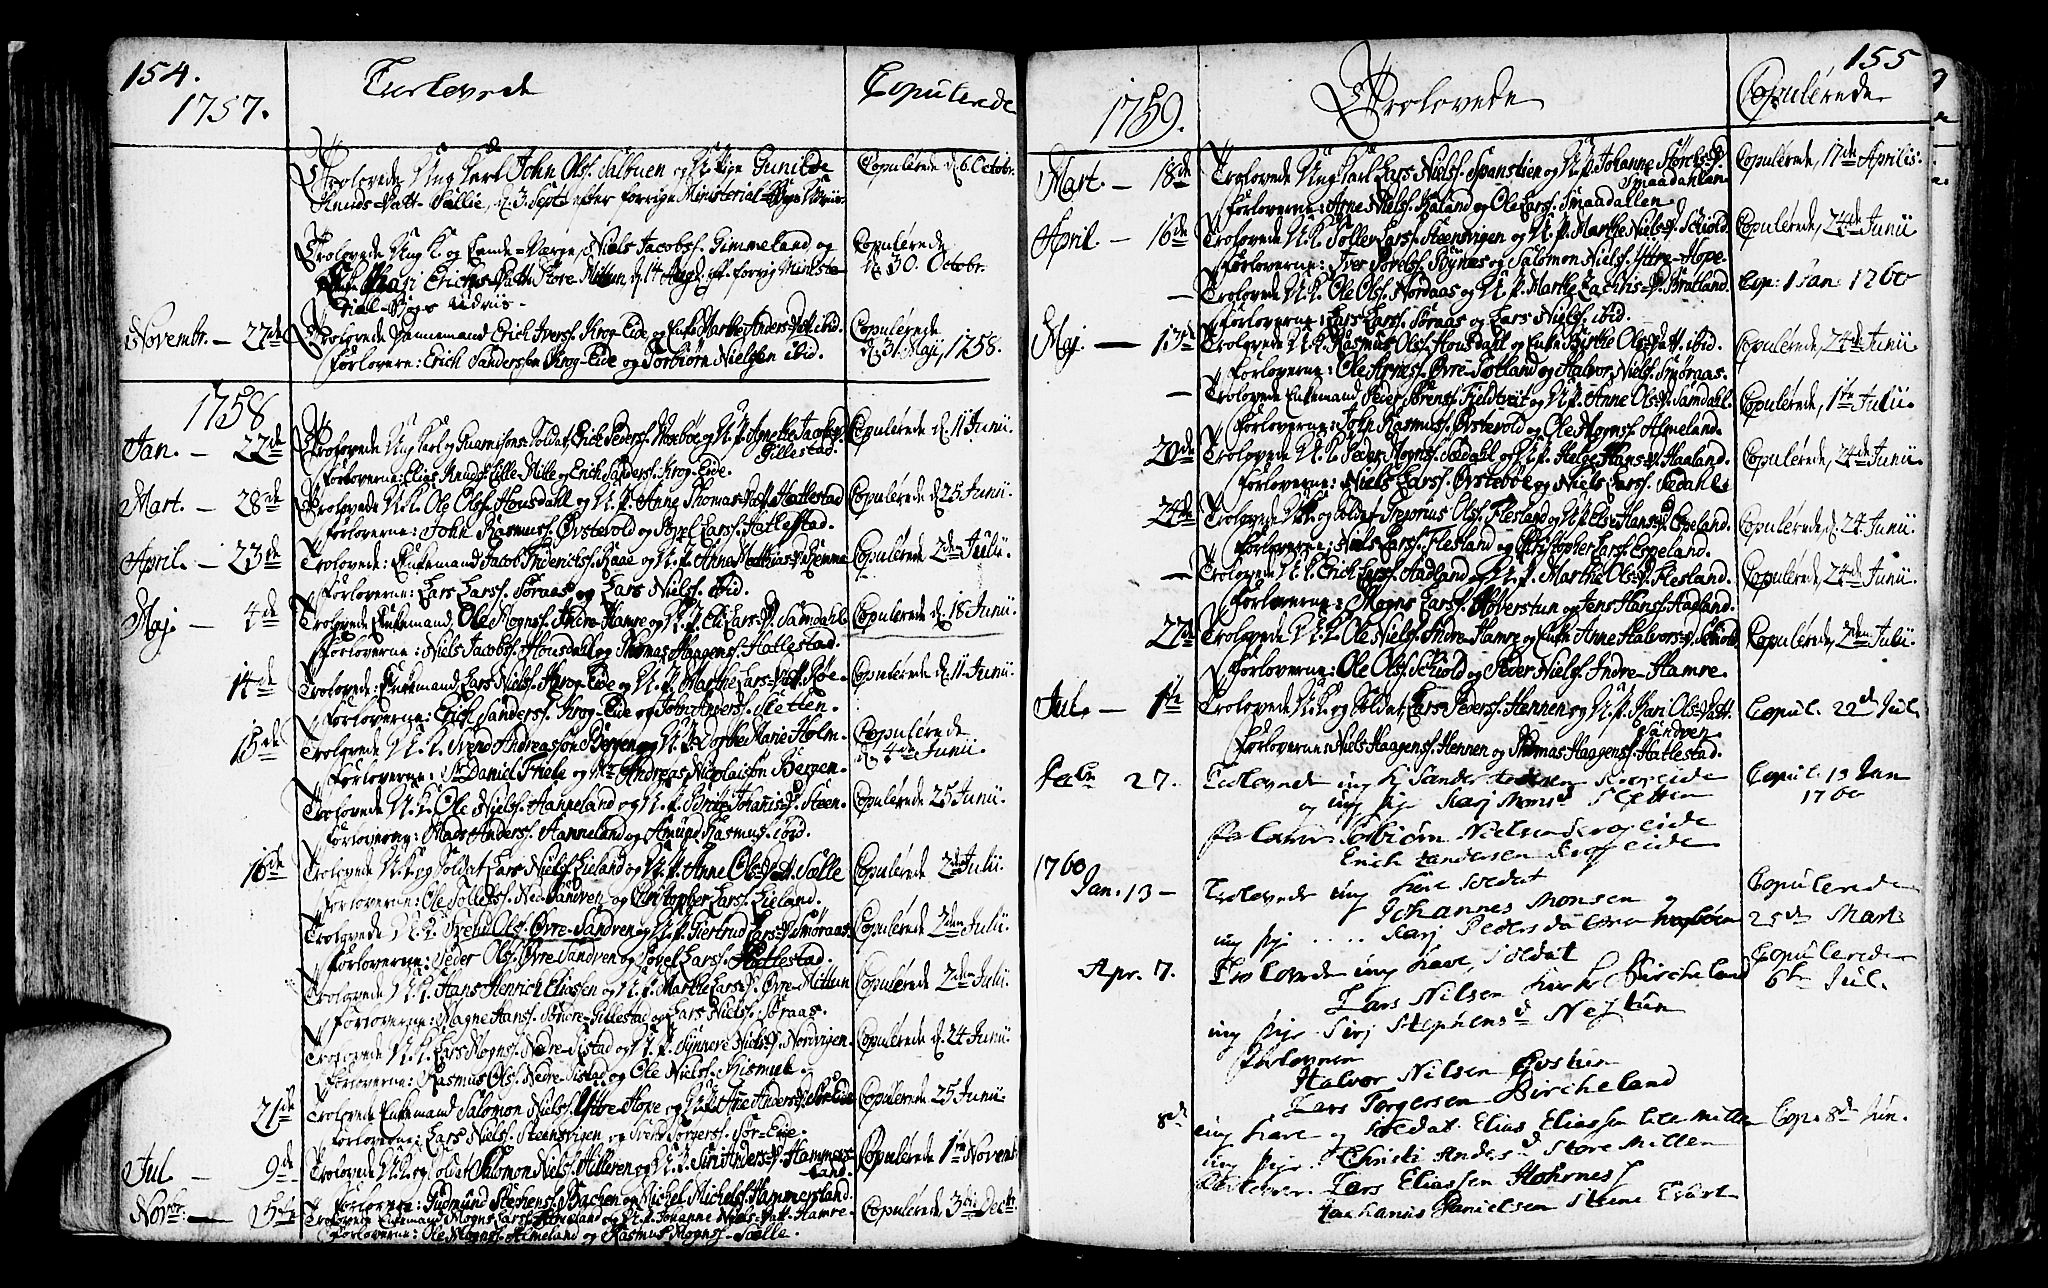 154.
1757.
Trolovede
Copulerede
Trolovede Ung Karl John Olss. Salbuen og U. Pige Gunilde
Knuds-Datt. Sælle, d. 3. Sept. efter forrige Ministerial-Bogs
Copulerede d. 6. Octobr.
Trolovede Ung K. og Lands-Verge, Niels Jacobss. Gimmeland og
Erichs-Datt. Store-Mitun, d. 14 Aug. forrig Ministe-
rial-Bogs Udviis.
Copulerede
d. 30. Octobr.
Novembr. - 27de
Trolovede Dannemand Erich Iverss. Krog-Eide og Enke Marthe Anders-Datt. ibid.
Forlovere: Erich Sanderssen Krog-Eide og Torbiørn Nielssen ibid.
Copulerede
d. 31. Maji, 1758.
1758
Jan. - 22de
Trolovede Ung Karl og Guarnisons-Soldat, Erich Pederss. Moseboe og U. P. Anethe Jacobs-D.
Gillestad.
Forloverne: Elias Knudss. Lille-Mitte og Erich Sanderss. Krog-Eide.
Copulerede d. 11 Junii.
Mart. - 28de
Trolovede U. K. Ole Olss. Housdahl og U. P. Anne Thomas-Datt. Hatlestad
Forloverne: John Rasmuss. Øvstevold og Larss. Hatlestad.
Copulerede d. 25 Junii.
April. - 23de
Trolovede: Enkemand Jacob Friderichss. Raae og U. P. Anne Matthias-D. Hjemme
Forloverne: Lars Larss. Søraas og Lars Nielss. ibid.
Copulerede 2den Julii.
Maj. - 4de
Trolovede Enkemand, Ole Mognss. Indre-Hamre og U. P. Eli Lars-D. Samdahl.
Forloverne: Niels Jacobss. Housdahl og Thomas Haagenss. Hatlestad.
Copulerede d. 18 Junii.
14de
Trolovede: Enkemand, Lars Nielss. Krog-Eide og U. P. Marthe Lars-Datt. Røe.
Forloverne: Erich Sanderss. Krog-Eide og John Anderss. Sletten.
Copulerede d. 11 Junii.
15de
Trolovede U. K. Svend Andreassøn Bergen og U. P. Dorthe Marie Holm.
Forloverne: Sr. Daniel Thiele og Sr. Andreas Nicolaisøn Bergen.
Copulerede
d. 4de Junii.
Trolovede U. K. Ole Nielss. Hanneland og U. P. Brite Johannis-D. Steen.
Forloverne: Mads Anderss. Hanneland og Amund Rasmuss. ibid.
Copulerede 25 Junii.
16de
Trolovede U. K. og Soldat Lars Nielss. Lieland og U. P. Anne Ols-Datt. Sælle
Forloverne: Ole Tollefss. Nedre-Sandven og Christopher Larss. Lieland.
Copulerede 2den Julii.
Trolovede U. K. Svend Olss. Øvre-Sandven og U. P. Giertrud Lars-D. Smøraas
Forloverne: Peder Olss. Øvre Sandven og Larss. Hatlestad.
Copulerede 2den Julii.
Trolovede U. K. Hans Henrich Eliassen og U. P. Marthe Larss. Øvre-Mittun
Forloverne: Magne Hanss. Søndre-Gillestad og Lars Nielss. Søraas.
Copulerede 2den Julii.
Trolovede U. K. Lars Mognss. Nedre-Tistad og U. P. Synneve Niels-D. Nordvigen.
Forloverne: Rasmus Olss. Nedre-Tistad og Ole Nielss. Bismut.
Copulerede d. 24 Junii.
21de
Trolovede Enkemand Salomon Nielss. Yttre-Hope og U. P. Ane Anders-D. Sør-Eide
Forloverne: Lars Nielss. Steensvigen og Svend Torgerss. Sør-Eide.
Copulerede 25 Junii.
Jul. - 9de
Trolovede U. K. og Soldat Salomon Nielss. Hilleren og U. P. Siri Anders-D. Hammers-
land.
Forloverne: Gudmund Stephenss. Backen og Michel Michelss. Hammersland.
Copulerede 1te Novembr.
Novbr. - 5te
Trolovede Enkemand Mogns Larss. Almeland og U. P. Johanne Niels-Datt. Hamre.
Forloverne: Ole Mognss. Almeland og Rasmus Mognss. Sælle.
Copulerede, 3die Decbr.
155
1759.
Trolovede
Copulerede
Mart. - 18de
Trolovede Ung Karl Lars Nielss. Spanstien og U. P. Johanne Siurs-D.
Smaadahlen
Forloverne: Arne Nielss. Raaland og Ole Larss. Smaadallen.
Copulerede, 17de Aprilis.
April. - 16de
Trolovede U. K. Soller Larss. Steensvigen og U. P. Marthe Niels-D. Schiold.
Forloverne: Iver Povelss. Søynes og Salomon Nielss. Yttre-Hope.
Copulerede, 24de Junii
- Trolovede U. K. Ole Olss. Nordaas og U. P. Marthe Zachris-D. Bratland.
Forloverne: Lars Larss. Søraas og Lars Nielss. ibid.
Cop: 1 Jan: 1760
Maj. - 13de
Trolovede U. K. Rasmus Olss. Housdahl og Enke Birthe Ols-Datt. ibid.
Forloverne: Ole Arness. Øvre-Titland og Halvor Nielss. Smøraas.
Copulerede, 24de Junii
- Trolovede Enkemand Peder Sørenss. Fieldtvæit og U. P. Anne Ols-D. Samdahl.
Forloverne: John Rasmuss. Øvstevold og Ole Mognss. Almeland.
Copulerede, 1te Julii.
20de
Trolovede U. K. Peder Mognss. Sædahl og U. P. Helge Hans-D. Haaland.
Forloverne: Niels Larss. Øvstebøe og Niels Larss. Sædahl.
Copulerede, 24de Junii.
24de
Trolovede U. K. og Soldat Gregorius Olss. Flesland og U. P. Else Hans-D. Espeland.
Forloverne: Niels Larss. Flesland og Christopher Larss. Espeland.
Copulerede d. 24 Junii.
- Trolovede U. K. Erich Larss. Aadland og U. P. Marthe Ols-D. Flesland.
Forloverne: Mogns Larss. Røverstun og Jens Hanss. Aadland.
Copulerede, 24de Junii.
27de
Trolovede U. K. Ole Nielss. Indre-Hamre og Enke Anne Halvors-D. Schiold
Forloverne: Ole Olss. Schiold og Peder Nielss. Indre-Hamre.
Copulerede, 2den Julii.
Jul. - 1te
Trolovede U. K. og Soldat, Lars Pederss. Hennen og U. P. Kari Ols-Datt.
Sandven
Forloverne: Niels Haagenss. Hennen og Thomas Haagenss. Hatlestad.
Copul. 22de Jul.
27.
Trolovede ung K. Sander Krogeide
og ung pige Karj Mons D Sletten
forlover Torbiørn Nielsen Krogeide
Erich Sandersen Krogeide
Copul. 13 Jan
1760
1760
Jan. 13 -
Trolovede ung karl Soldat
Johannes Monsen og
ung pige ..... Karj Peders
Copulerede
25de Marts
Apr. 7.
Trolovede ung karl, Soldat
Lars Nilsen kirke Bircheland
ung pige Sirj Stephens D Nestun
forlovere
Halvor Nilsen
Lars Torgersen Bircheland
Copulerede
6te Jul.
8de
ung karl og Soldat Elias Eliassen Lile Mitten
ung pige Christi Anders D Store Mitten
forlovere. Lars Eliassen
Johannes Danielsen
Cop. 8de Jun.